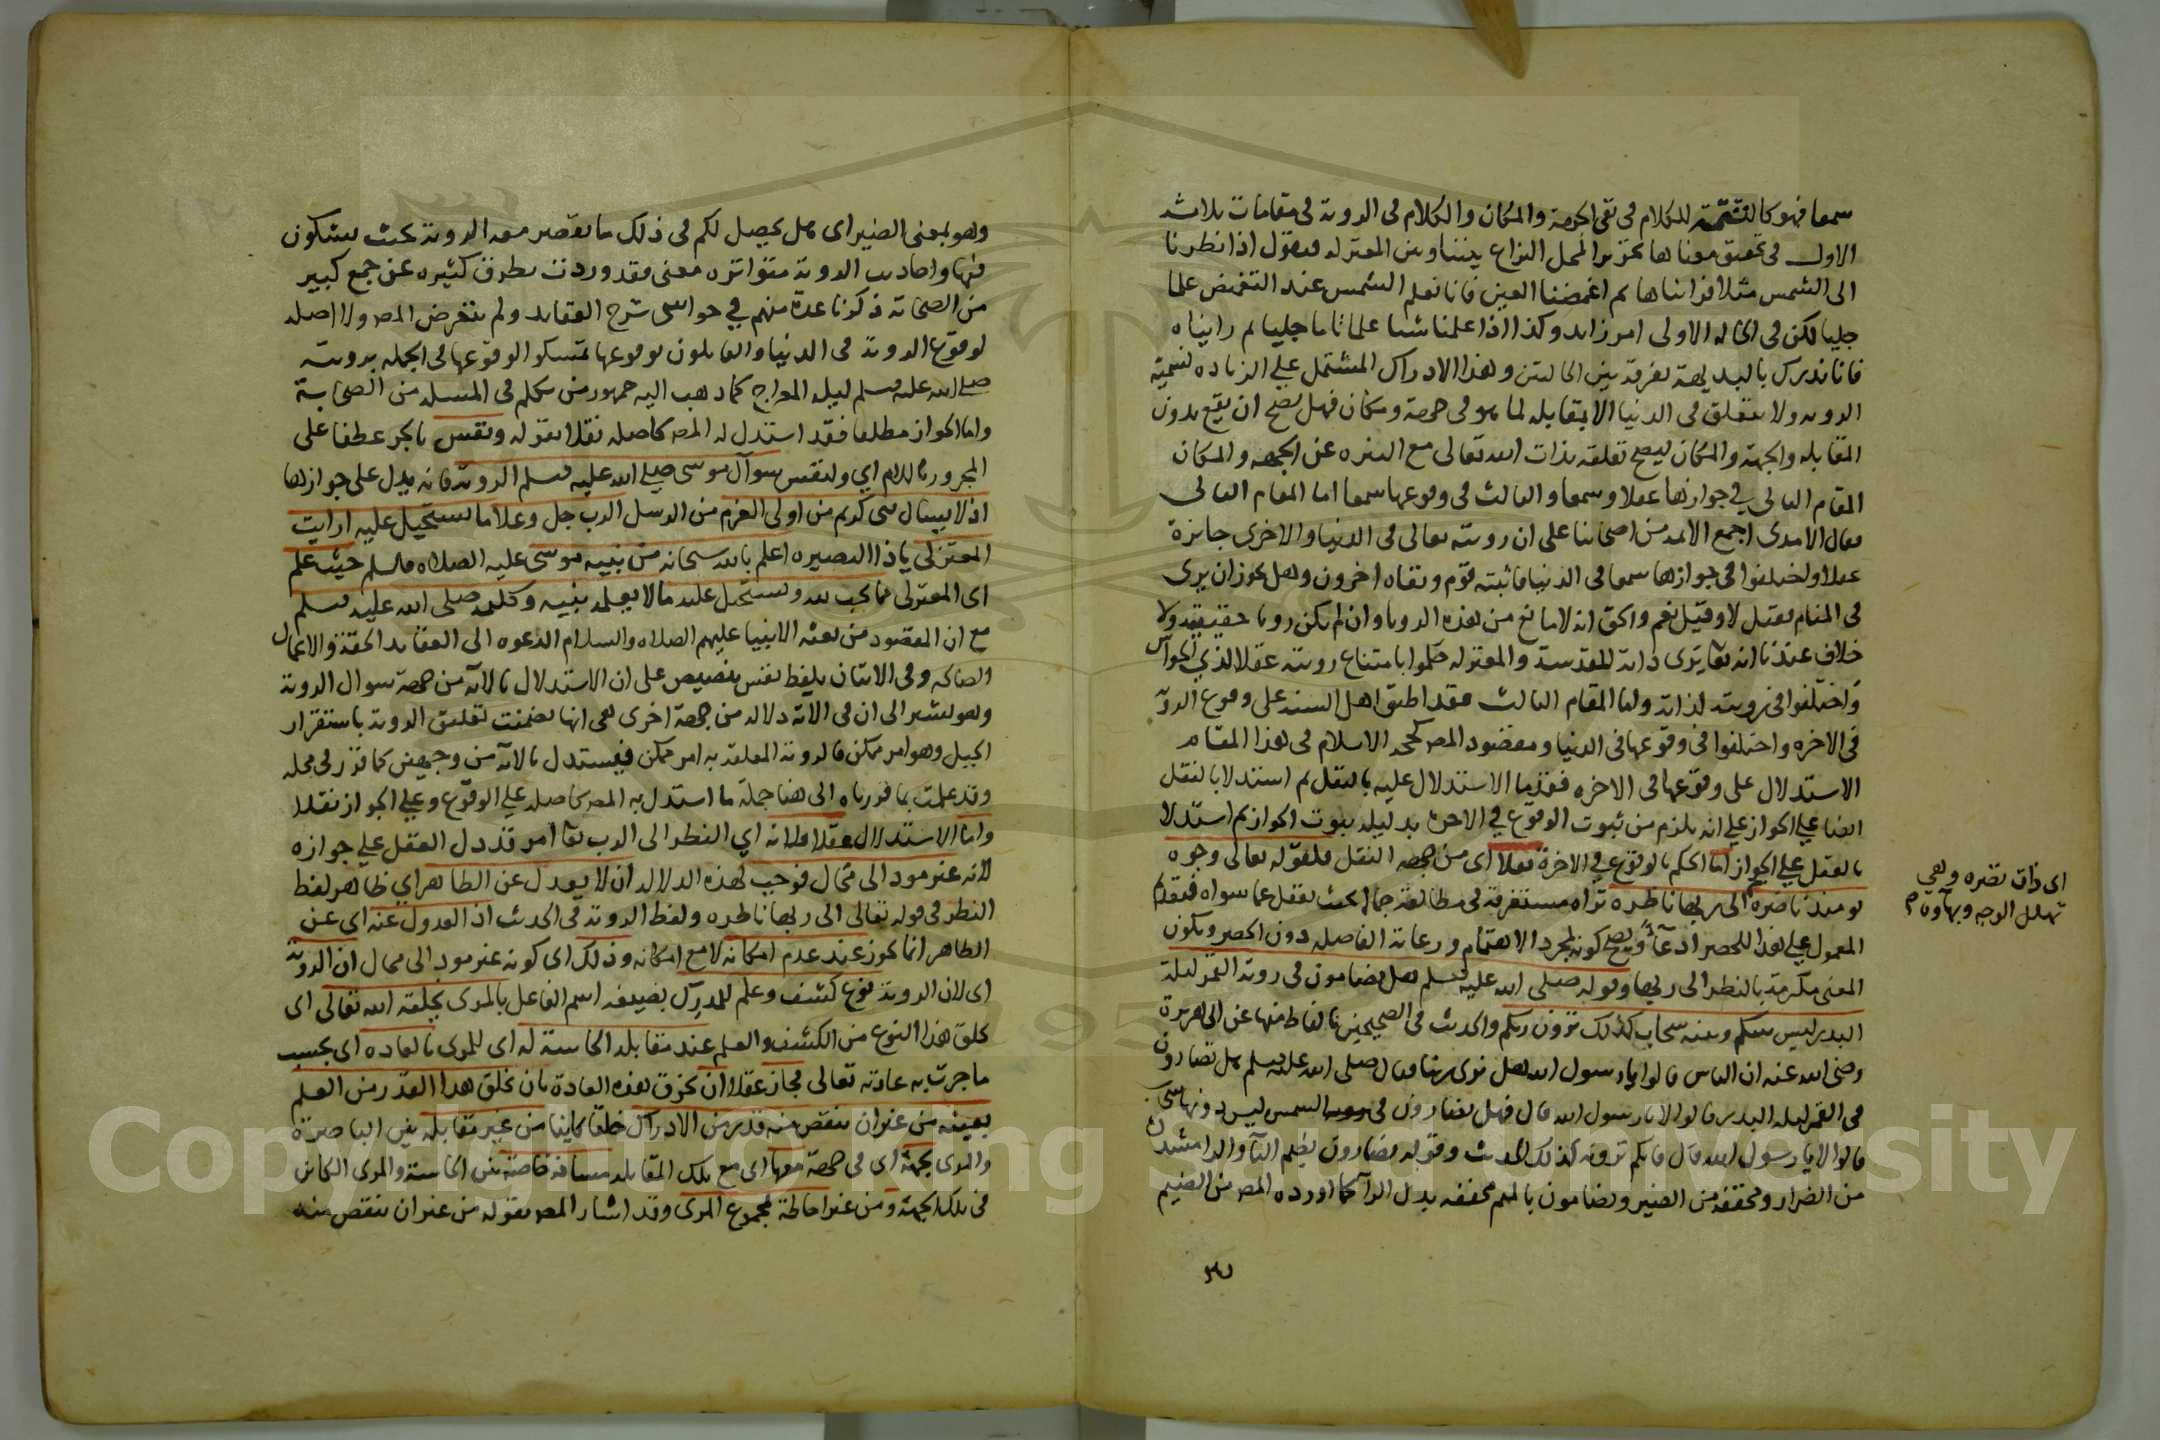 سمعا فهو كالتتمة للكلام في نفي الجهة والمكان والكلام في الروية في مقامات ثلاث
الاول في تحقيق معناها تحريرا لمحل النزاع بيننا وبين المعتزله فنقول اذا نظرنا
الى الشمس مثلا فراىناها ثم اغمضنا العين فانا نعلم الشمس عند التغميض علما
جليا لكن في الحاله الاولى امر زايد وكذا اذا علمنا شيا علما تاما جليا ثم رايناه
فانا ندرك بالبديهة تفرقة بين الحالتين وهذا الادراك المشتمل على الزياده نسميه
الرويه ولا يتعلق في الدنيا الا بمقابله لما هو في جهة ومكان فهل يصح ان يقع بدون
المقابله والجهة والمكان ليصح تعلقه بذات الله تعالى مع التنزه عن الجهه والمكان
المقام الثاني في جوازها عقلا وسمعا والثالث في وقوعها سمعا اما المقام الثاني
فقال الامدي اجمع الايمه من اصحابنا على ان رويته تعالى في الدنيا والاخرى جايزة
عقلا واختلفوا في جوازها سمعا في الدنيا فاثبته قوم ونفاه اخرون وهل يجوز ان يرى
في المنام فقيل لا وقيل نعم والحق انه لا مانع من هذه الرويا وان لم يكن رويا حقيقيه ولا
خلاف عندنا انه تعا يرى ذاته المقدسة والمعتزله حكموا بامتناع رويته عقلا لذي الحواس
واختلفوا في رويته لذاته واما المقام الثالث فقد اطبق اهل السنه على وقوع الروية
في الاخره واختلفوا في وقوعها في الدنيا ومقصود المص كحجه الاسلام في هذا المقام
الاستدلال على وقوعها في الاخره فقدما الاستدلال عليه بالنقل ثم استدلا بالنقل
ايضا على الجواز على انه يلزم من ثبوت الوقوع في الاخره بدليله ثبوت الجواز ثم استدلا
بالعقل على الجواز اما الحكم بالوقوع في الاخرة نقلا اى من جهه النقل فلقوله تعالى وجوه
يومئذ ناضرة الى ربها ناظرة تراه مستغرقة في مطالعة جماله بحيث تغفل عما سواه فتقديم
المعمول على هذا للحصر ادعاء ويصح كونه لمجرد الاهتمام ورعاية الفاصله دون الحصر ويكون
المعنى مكرمة بالنظر الى ربها وقوله صلى الله عليه وسلم هل تضامون في روية القمر ليلة
البدر ليس بينكم وبينه سحاب كذلك ترون ربكم والحديث في الصحيحين بالفاظ منها عن ابي هريرة
رضى الله عنه ان الناس قالوا يا رسول الله هل نرى ربنا فقال صلى الله عليه وسلم هل تضارون
في القمر ليله البدر قالوا لا يا رسول الله قال فهل تضارون في الشمس ليس دونها سحاب
قالوا لا يا رسول الله قال فانكم ترونه كذلك الحديث وقوله تضارون بضم التا والرا مشددة
من الضرار ومخففة من الضير وتضامون بالميم مخففه بدل الرا كما اورده المص من الضيم
اى ذات نضره وهي
تهلل الوجه وبهاوه
وهو بمعنى الضير اى هل يحصل لكم في ذلك ما يقصر معه الروية بحيث تشكون
فيها واحاديث الروية متواتره معنى فقد وردت بطرق كثيره عن جمع كبير
من الصحابة ذكرنا عدة منهم في حواشي شرح العقايد ولم يتعرض المص ولا اصله
لوقوع الروية في الدنيا والقايلون بوقوعها تمسكوا لوقوعها في الجمله برويته
صلى الله عليه وسلم ليلة المعراج كما ذهب اليه جمهور من تكلم في المسله من الصحابة
واما الجواز مطلقا فقد استدل له المص كاصله نقلا بقوله ونفس بالجر عطفا على
المجرور باللام اي ولنفس سوال موسى صلى الله عليه وسلم الروية فانه يدل على جوازها
اذ لا يسال نبى كريم من اولى العزم من الرسل الرب جل وعلا ما يستحيل عليه ارايت
المعتزلى ياذا البصيره اعلم بالله سبحانه من نبيه موسى عليه الصلاه والسلام حيث علم
اى المعتزلى ما يجب لله ويستحيل عليه ما لا يعلمه نبيه وكليمه صلى الله عليه وسلم
مع ان المقصود من بعثه الانبيا عليهم الصلاه والسلام الدعوه الى العقايد الحقة والاعمال
الصالحه وفي الاتيان بلفظ نفس تنصيص على ان الاستدلال بالاية من جهة سوال الروية
وهو يشير الى ان في الاية دلالة من جهة اخرى هى انها تضمنت تعليق الروية باستقرار
الجبل وهو امر ممكن فالروية المعلقة به امر ممكن فيستدل بالاية من وجهين كما قرر في محله
وقد علمت بما قررناه الى هنا جملة ما استدل به المص كاصله على الوقوع وعلى الجواز نقلا
واما الاستدلال عقلا فلانه اي النظر الى الرب تعا امر قد دل العقل على جوازه
لانه غير مود الى محال فوجب لهذه الدلالة ان لا يعدل عن الظاهر اي ظاهر لفظ
النظر في قوله تعالى الى ربها ناظره ولفظ الروية في الحديث اذ العدول عنه اى عن
الظاهر انما يجوز عند عدم امكانه لا مع امكانه وذلك اى كونه غير مود الى محال ان الروية
اى لان الروية نوع كشف وعلم للمدرك بصيغه اسم الفاعل بالمرى يخلقه الله تعالى اى
يخلق هذا النوع من الكشف والعلم عند مقابلة الحاسة له اى للمرى بالعاده اى بحسب
ما جرت به عادته تعالى فجاز عقلا ان تخرق هذه العادة بان يخلق هذا القدر من العلم
بعينه من غير ان ينقص منه قدر من الادراك خلقا كاينا من غير مقابلة بين الباصرة
والمرى بجهة اى في جهة معها اى مع تلك المقابلة مسافة خاصة بين الحاسة والمرى الكاين
في تلك الجهة ومن غير احاطة لمجموع المرى وقد اشار المص بقوله من غير ان ينقص منه
Copyright © King Saud University